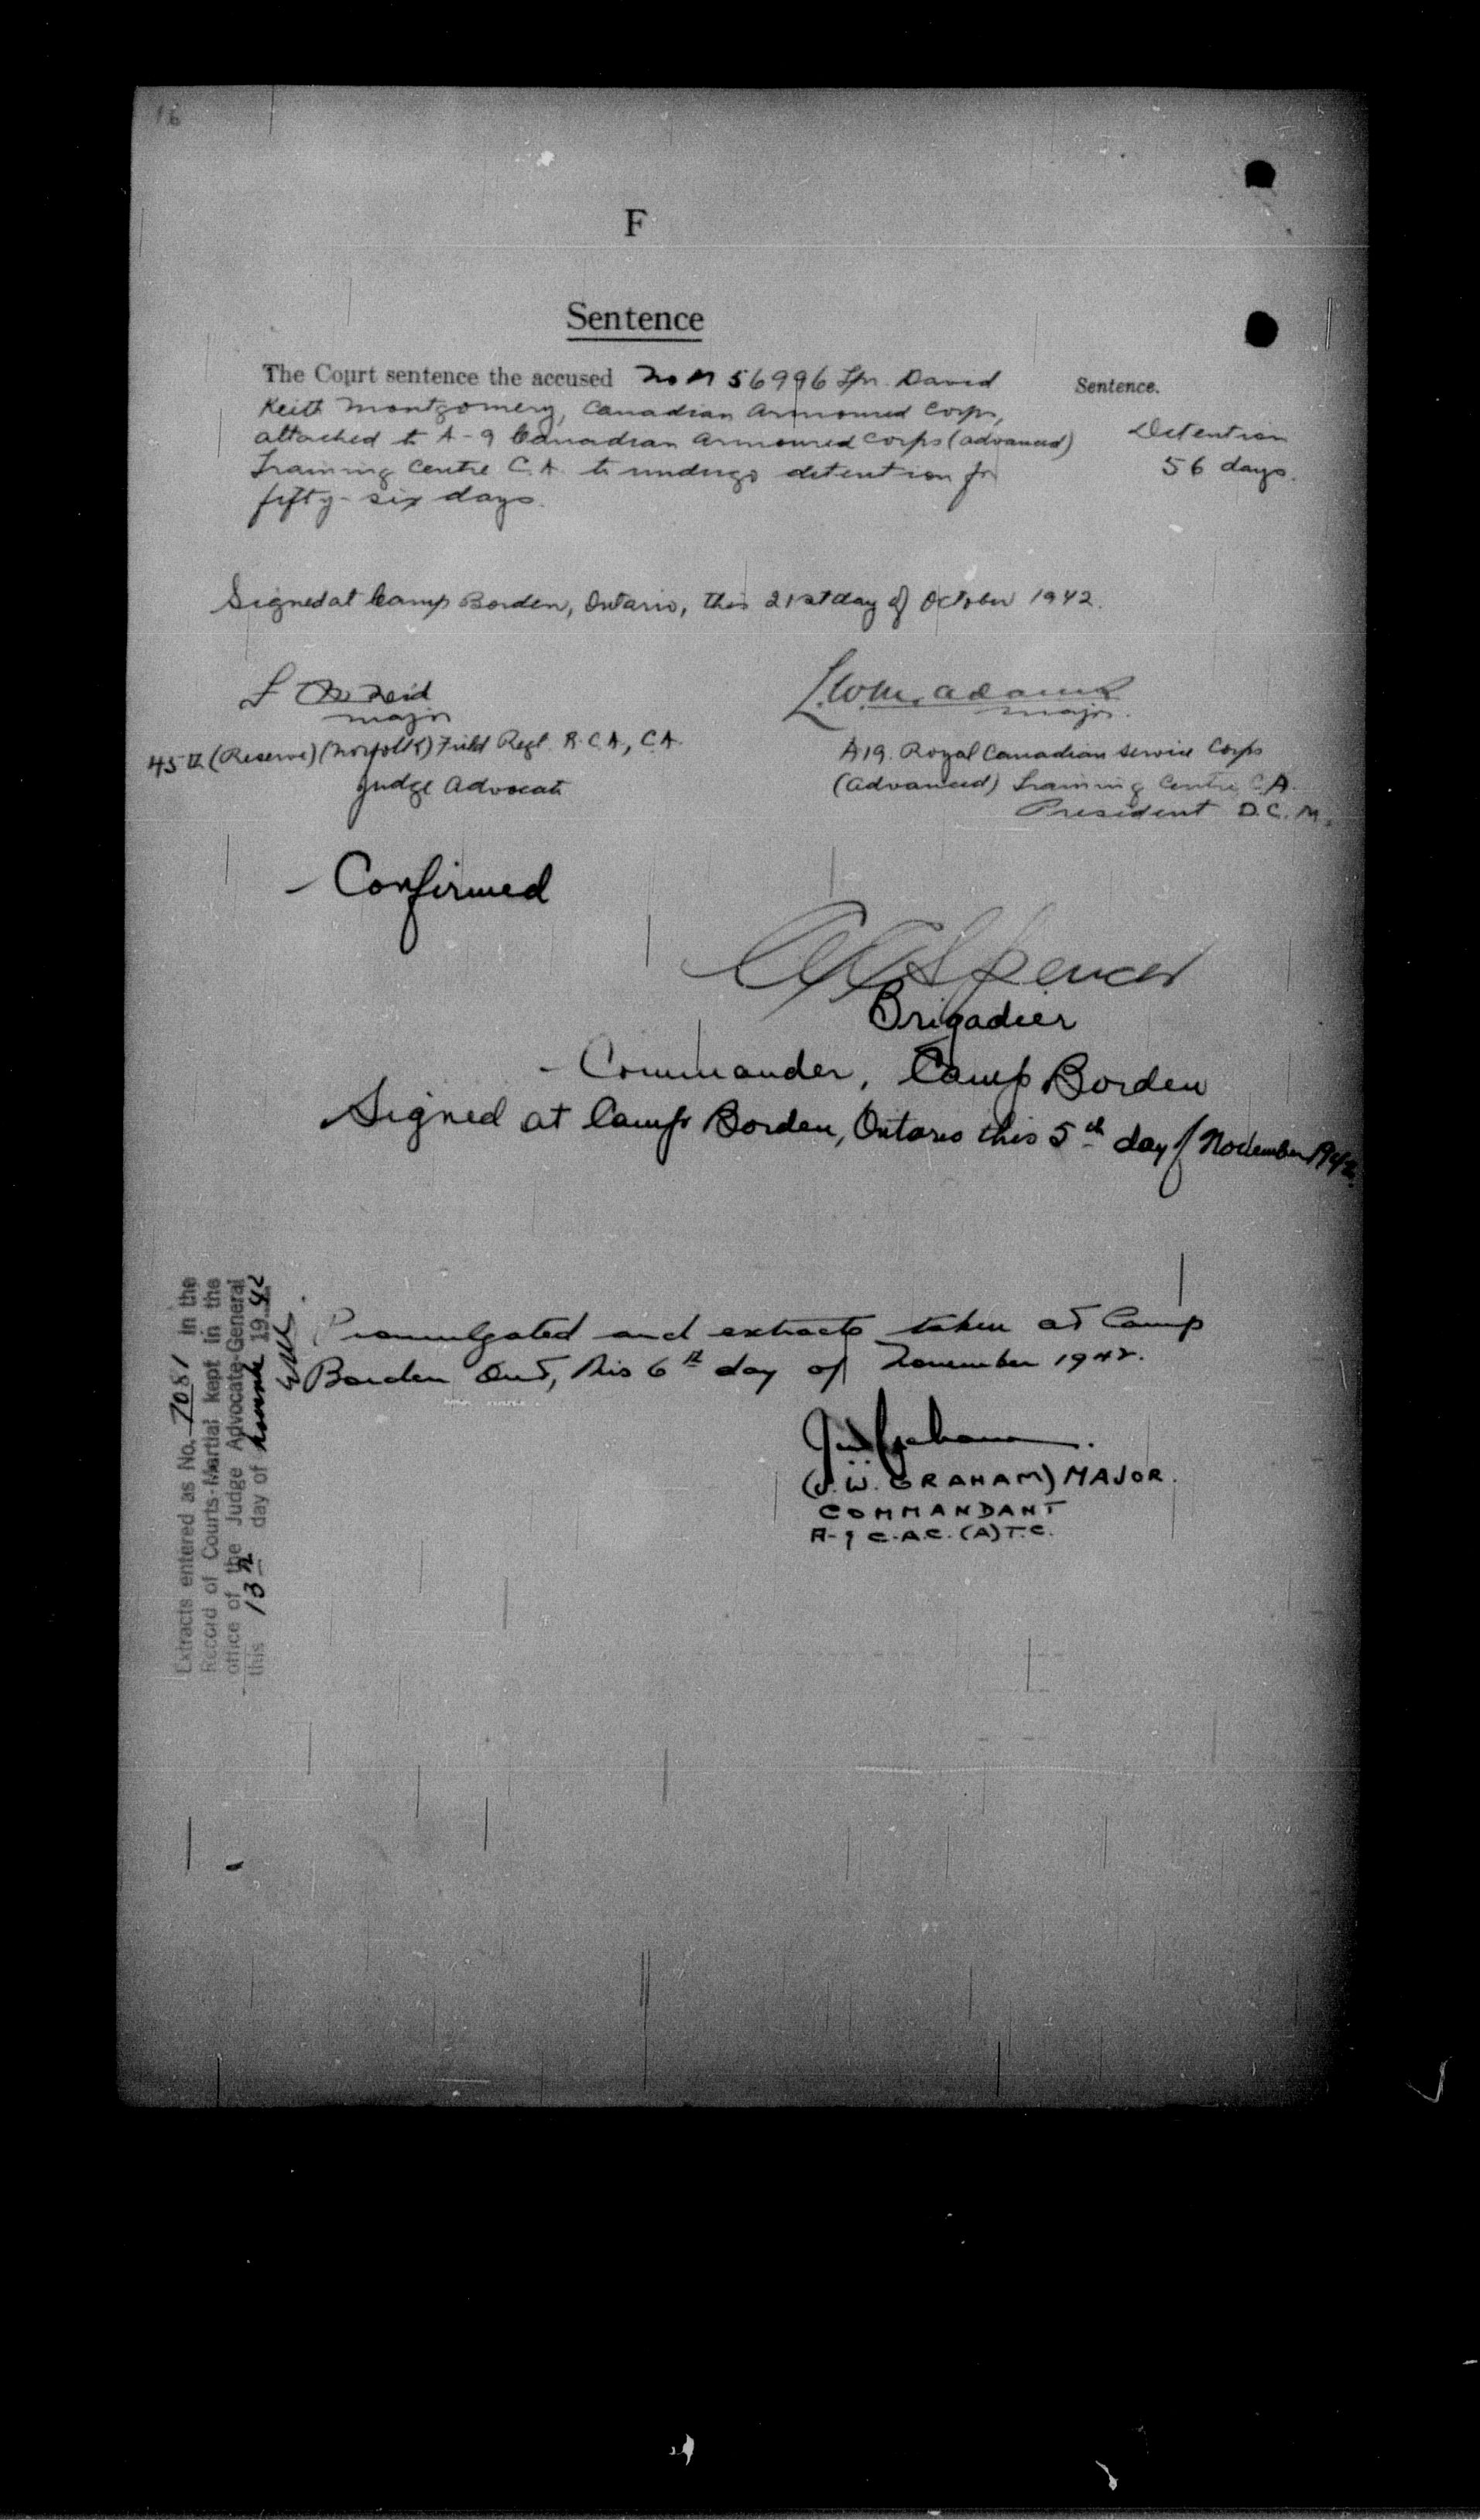 16
F
Sentence
The Court sentence the accused No M 56996 Tpr. David
Keith Montgomery, Canadian Armoured Corps,
attached to A-9 Canadian Armoured Corps (Advanced)
Training Centre C.A. to undergo detention for
fifty-six days.
Sentence.
Detention
56 days.
Signed at Camp Borden, Ontario, this 21st day of October 1942.
Reid
Major
45th (Reserve) (Norfolk) Field Regt. R.C.A., C.A.
Judge Advocate
L. Wm. Adams
Major.
A19. Royal Canadian Service Corps
(Advanced) Training Centre C.A.
President D.C.M.
- Confirmed
Spencer
Brigadier
- Commander, Camp Borden
Signed at Camp Borden, Ontario this 5th day of November 1942.
Promulgated and extracts taken at Camp
Borden Ont, this 6th day of November 1942.
J.W. Graham.
(J.W. GRAHAM) MAJOR.
COMMANDANT
A-9 C.A.C. (A) T.C.
Extracts entered as No. 7081 in the
Record of Courts-Martial kept in the
office of the Judge Advocate-General
this 13th day of 19 42